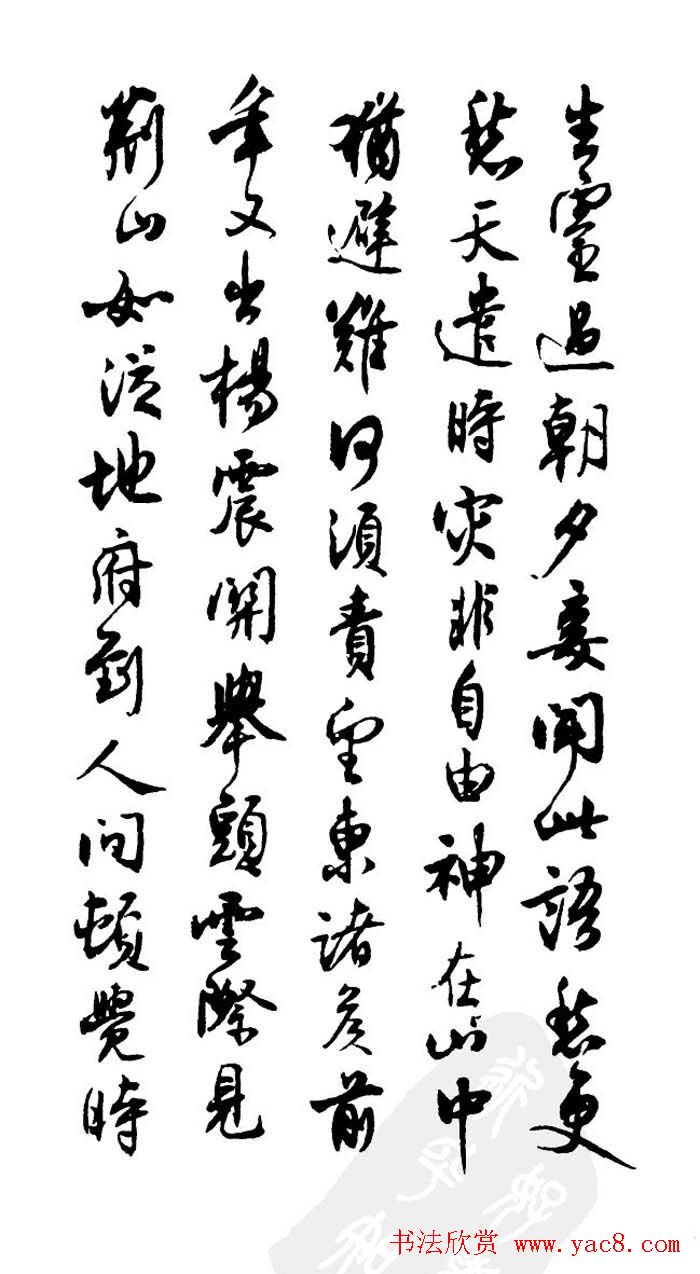 生靈過朝夕妾聞此語愁更
愁天遣時灾非自由神在山中
猶避難何須責望東諸侯前
年又出楊震關舉頭雲際見
荊山如從地府到人間頓覺時
书法欣赏 www.yac8.com